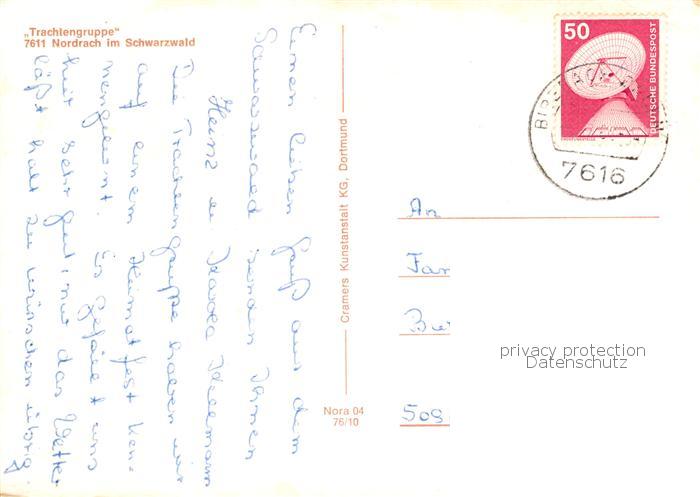 „Trachtengruppe"
7611 Nordrach im Schwarzwald
Einen lieben Gruß aus dem
Schwarzwald senden Ihnen
Heinz u.
Die Trachtengruppe haben wir
auf einem Heimatfest ken-
nengelernt. Es gefällt uns
hier sehr gut, nur das Wetter
läßt halt zu wünschen übrig.
Cramers Kunstanstalt KG, Dortmund
Nora 04
76/10
50
DEUTSCHE BUNDESPOST
7616
An
Fam
privacy protection
Datenschutz